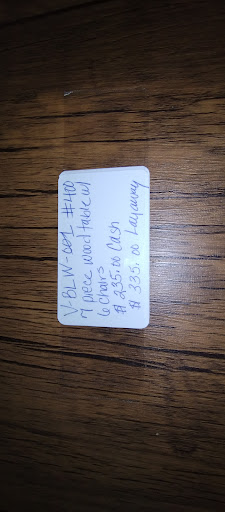 V-BLW-001 #400
7 piece wood table w/
6 chairs
$ 235.00 Cash
$ 335.00 Layaway